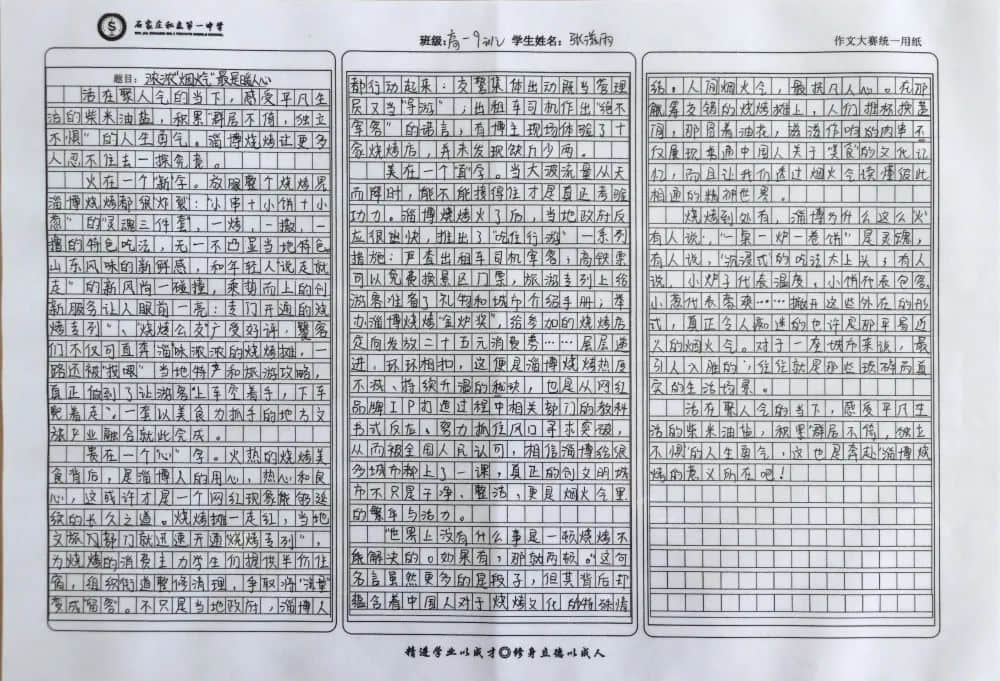 石家庄私立第一中学
班级:高一9班 学生姓名:张潇雨
作文大赛统一用纸
题目: 浓浓"烟火气"最是暖人心
活在聚人气的当下,感受平凡生
活的柴米油盐,积累"群居不倚,独立
不惧"的人生勇气。淄博烧烤让更多
人忍不住去一探究竟。
火在一个"新"字。放眼整个烧烤界
淄博烧烤都很炸裂:"小串+小饼+小
葱"的"灵魂三件套",一烤,一撒,一
撸的特色吃法,无一不凸显当地特色
山东风味的新鲜感,和年轻人"说走就
走"的新风尚一碰撞,乘势而上的创
新服务让人眼前一亮:专门开通的烧
烤专列"、"烧烤公交"广受好评,饕客
们不仅可直奔淄味浓浓的烧烤摊,一
路还被"投喂"当地特产和旅游攻略,
真正做到了让游客"上车空着手,下车
兜着走"。一套以美食为抓手的地方文
旅产业融合就此完成。
贵在一个"心"字。火热的烧烤美
食背后,是淄博人的用心,热心和良
心,这或许才是一个网红现象能够延
续的长久之道。烧烤摊一走红,当地
文旅门部门就迅速开通"烧烤专列",
为烧烤的消费主力学生们提供半价住
宿,组织街道整修清理,争取将"流量"
变成"留客"。不只是当地政府,淄博人
都行动起来:交警集体出动既当管理
员又当"导游";出租车司机作出"绝不
宰客"的诺言,有博主现场体验了十
家烧烤店,并未发现缺斤少两。
美在一个"真"字。当大波流量从天
而降时,能不能接得住才是真正考验
功力。淄博烧烤火了后,当地政府反
应很迅快,推出了"吃住行游"一系列
措施:严查出租车司机宰客;高铁票
可以免费换景区门票,旅游专列上给
游客准备了礼物和城市介绍手册;举
办淄博烧烤"金炉奖",给参加的烧烤店
定向发放二十五元消费券……层层递
进,环环相扣,这便是淄博烧烤热度
不减、持续升温的秘诀,也是从网红
品牌IP打造过程中相关部门的教科
书式反应、努力抓住风口寻求突破,
从而被全国人民认可,相信淄博给很
多城市都上了一课,真正的创文明城
市不只是干净、整洁,更是烟火气里
的繁华与活力。
"世界上没有什么事是一顿烧烤不
能解决的。如果有,那就两顿。"这句
名言虽然更多的是段子,但其背后却
蕴含着中国人对于烧烤文化的特殊情
结。人间烟火气,最抚凡人心。在那
觥筹交错的烧烤摊上,人们推杯换盏
间,那冒着油花,滋滋作响的肉串不
仅展现普通中国人关于"美食"的文化记
忆,而且让我们透过烟火气读懂彼此
相通的精神世界。
烧烤到处有,淄博为什么这么火
有人说,"一桌一炉一卷饼"是灵魂,
有人说,"沉浸式"的吃法太上头;有人
说,小炉子代表温度、小饼代表包容
小葱代表豪爽……撇开这些外在的形
式,真正令人痴迷的也许是那平易近
人的烟火气。对于一座城市来说,最
引人入胜的,往往就是那些琐碎而真
实的生活场景。
活在聚人气的当下,感受平凡生
活的柴米油盐,积累"群居不倚,独立
不惧的人生勇气,这也是奔赴"淄博烧
烤的意义所在吧!
精进学业以成才 修身立德以成人